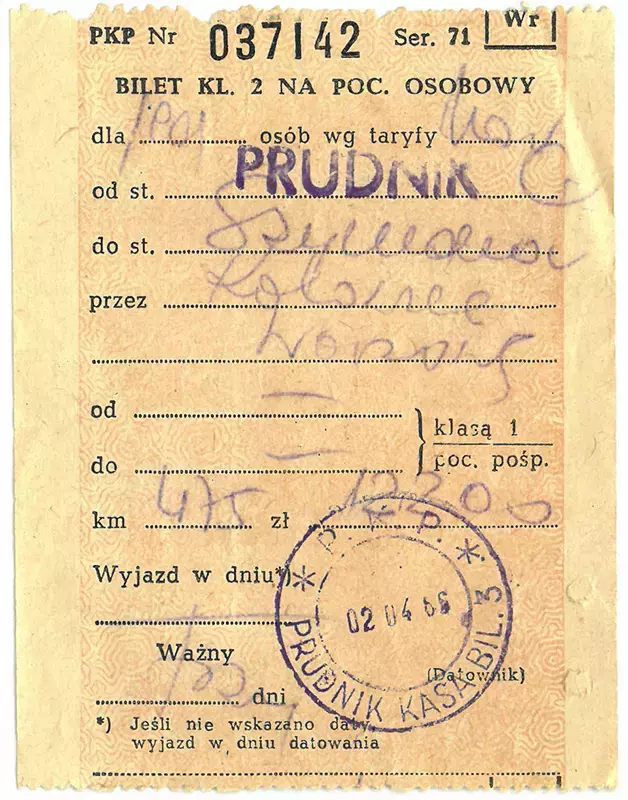 PKP Nr 037142 Ser. 71 Wr
BILET KL. 2 NA POC. OSOBOWY
dla ........ osób wg taryfy ........
PRUDNIK
od st. ........
do st. ........
przez ........
od ........ klasą 1
do ........ poc. pośp.
km 475 zł 17200
* P. K. P. *
Wyjazd w dniu*)
02 04 66
PRUDNIK KASA BIL. 3
Ważny
(Datownik)
........ dni
*) Jeśli nie wskazano daty
wyjazd w dniu datowania